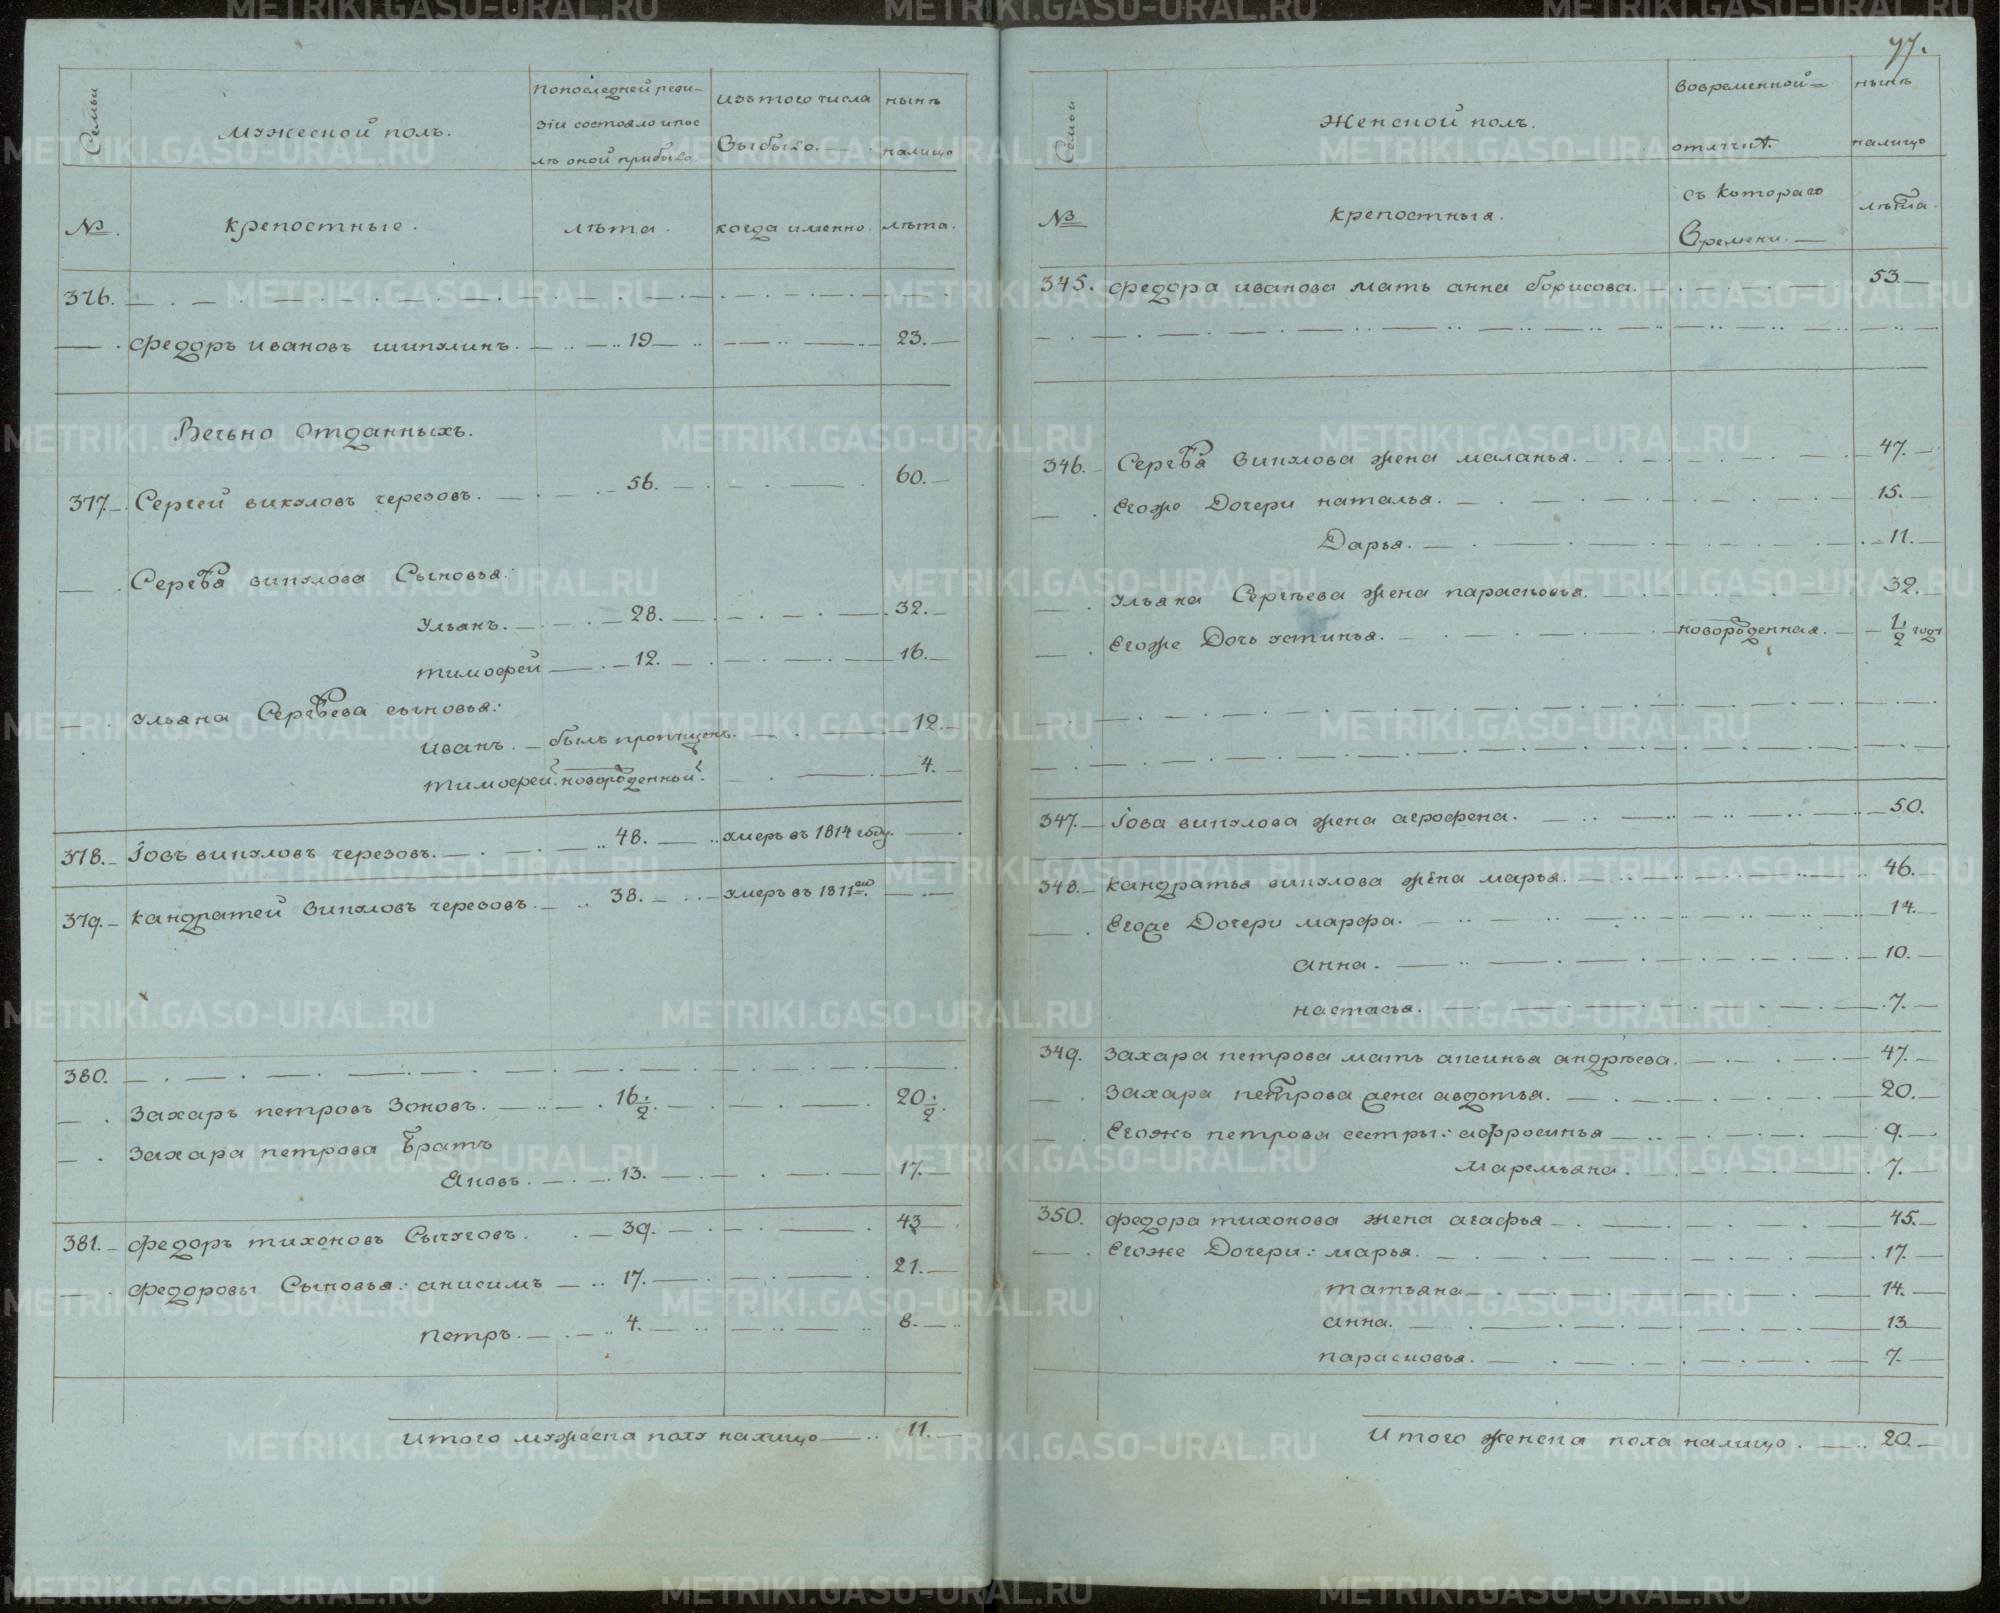 77.
Семьи
Мужеской полъ.
Попоследней реви-
зіи состояло ипос
лѣ оной прибыло.
Изътого числа
Выбыло.
нынѣ
налицо
№.
Крепостные.
лѣта.
когда именно.
лѣта.
376.
Федоръ Ивановъ шипулинъ. 19 23.
Вечьно Отданныхъ.
377. Сергей викуловъ черезовъ. 56. 60.
Сергѣя викулова Сыновья:
Ульянъ. 28. 32.
тимофей 12. 16.
ульяна Сергѣева сыновья:
иванъ. былъ пропущенъ. 12.
тимофей. новорожденной. 4.
378. Іовъ викуловъ черезовъ. 48. умеръ въ 1814 году.
379. кандратей викуловъ черезовъ. 38. умеръ въ 1811м.
380.
Захаръ петровъ Зоновъ. 16 1/2. 20 1/2.
Захара петрова братъ
Яковъ. 13. 17.
381. Федоръ тихоновъ Сычуговъ. 39. 43
федоровы Сыновья: анисимъ 17. 21.
петръ. 4. 8.
Итого мужеска полу налицо 11.
Семьи
Женской полъ.
Вовременной
отлучкѣ.
нынѣ
налицо
№
Крепостныя.
съ Котораго
Времени.
лѣта.
345. федора иванова мать анна борисова. 53.
346. Сергѣя викулова жена маланья. 47.
Егоже Дочери наталья. 15.
Дарья. 11.
ульяна Сергѣева жена парасковья. 32.
Егоже Дочь устинья. новорожденная. 1/2 года
347. Іова викулова жена агрофена. 50.
348. кандратья викулова жена марья. 46.
Егоже Дочери марфа. 14.
анна. 10.
настасья. 7.
349. Захара петрова мать аксинья андрѣева. 47.
Захара петрова жена авдотья. 20.
Егожъ петрова сестры: афросинья 9.
Маремьяна. 7.
350. федора тихонова жена агафья 45.
Егоже Дочери: марья. 17.
татьяна 14.
анна. 13
парасковья. 7.
Итого женска пола налицо. 20.
METRIKI.GASO-URAL.RU